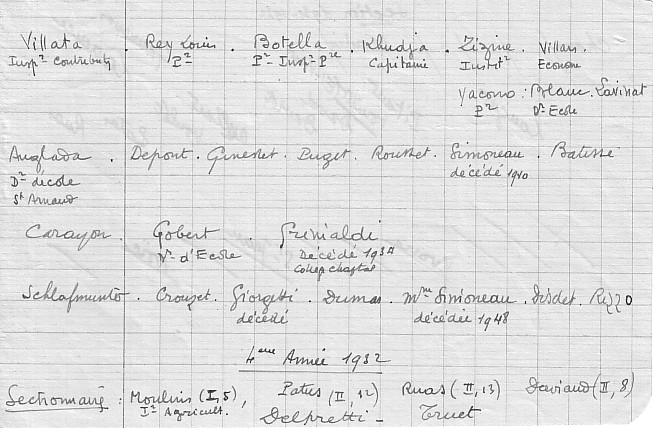 Villata . Rey Louis . Botella . Khudja . Zizine . Villars .
Insp² Contribut⁵ P² P²- Insp²- P^re Capitaine Instit² Econome
Yacono . Blanc . Lavinat
P² D²- Ecole
Anglada . Depont . Ginestet . Puget . Rousset . Simoneau . Batisse
D² d'école décédé 1910
St Arnaud
Carayon . Gobert . Grimaldi
D²- d'Ecole Décédé 1932
College Chaptal
Schlafmunter . Crouzet . Giorgetti . Dumas . Mme Simoneau . Disdet . Rizzo
décédé décédée 1948
4ème Année 1932
Sectionnaire : Moulins (I, 5) , Patus (II, 12) Ruas (II, 13) Daviaud (II, 8)
I² Agricult. Delpretti - Truet